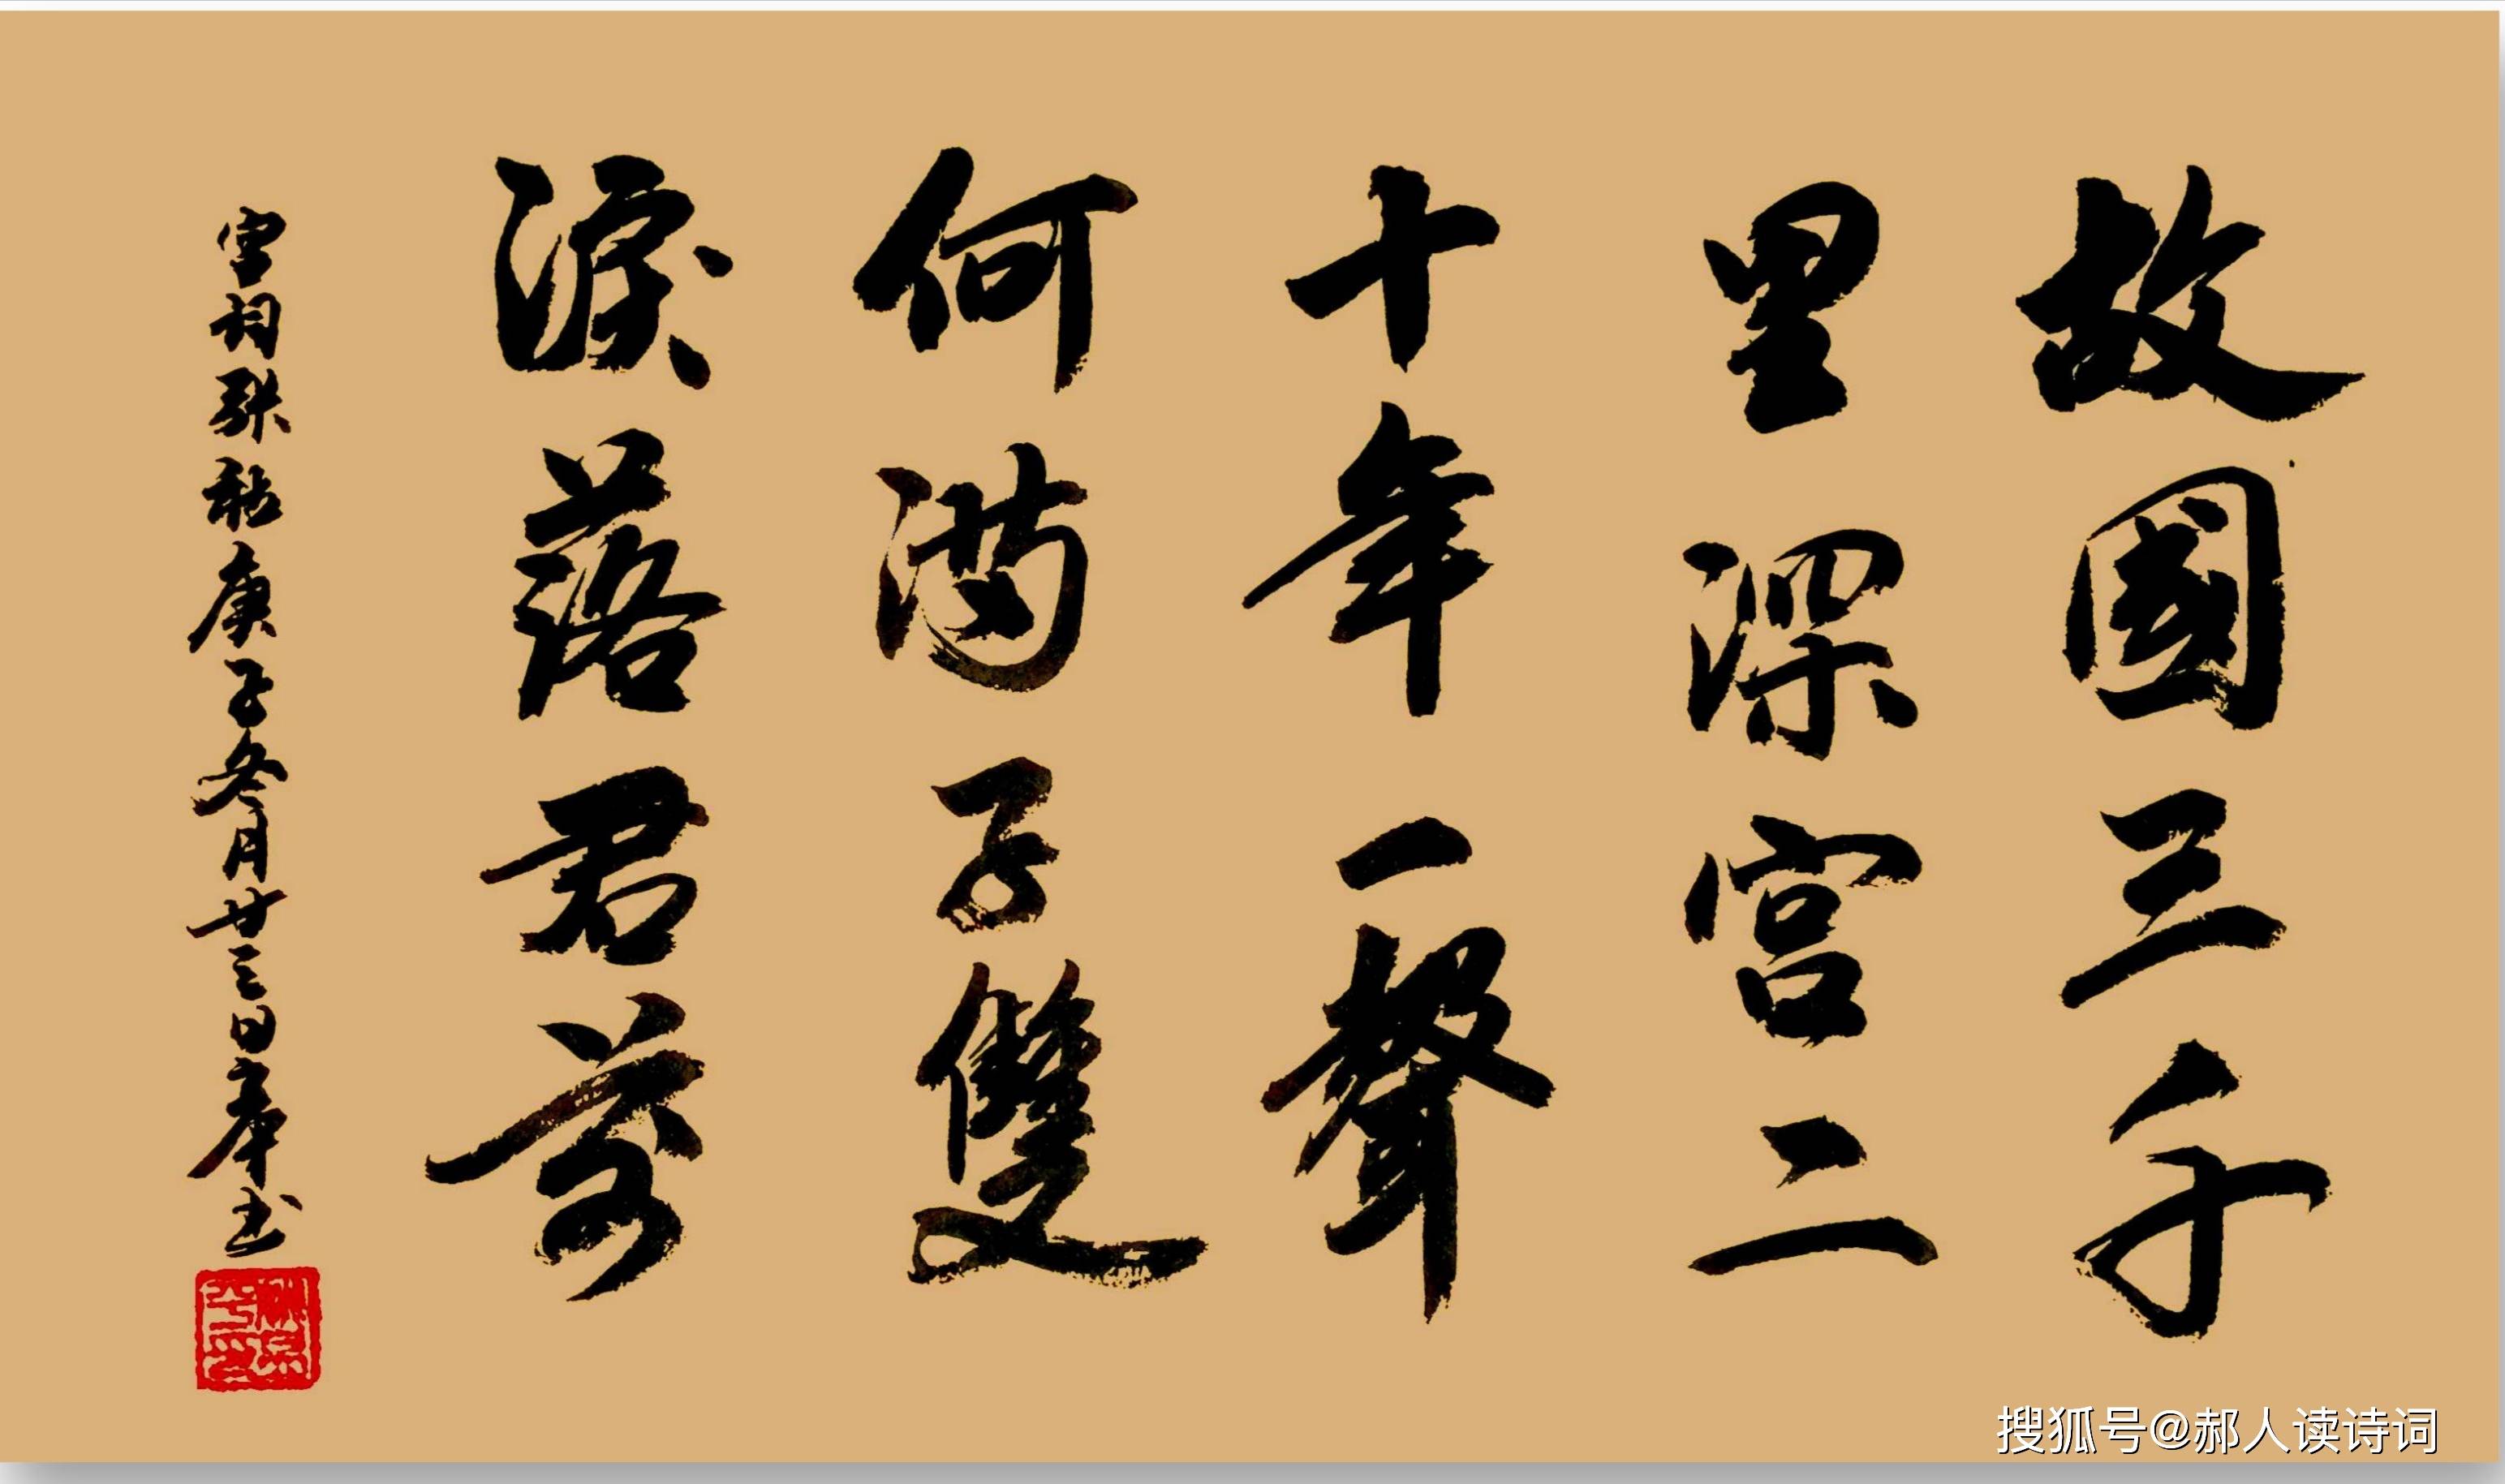 故國三千
里深宮二
十年一聲
何滿子雙
淚落君前
庚子冬月廿三日
書
搜狐号@郝人读诗词